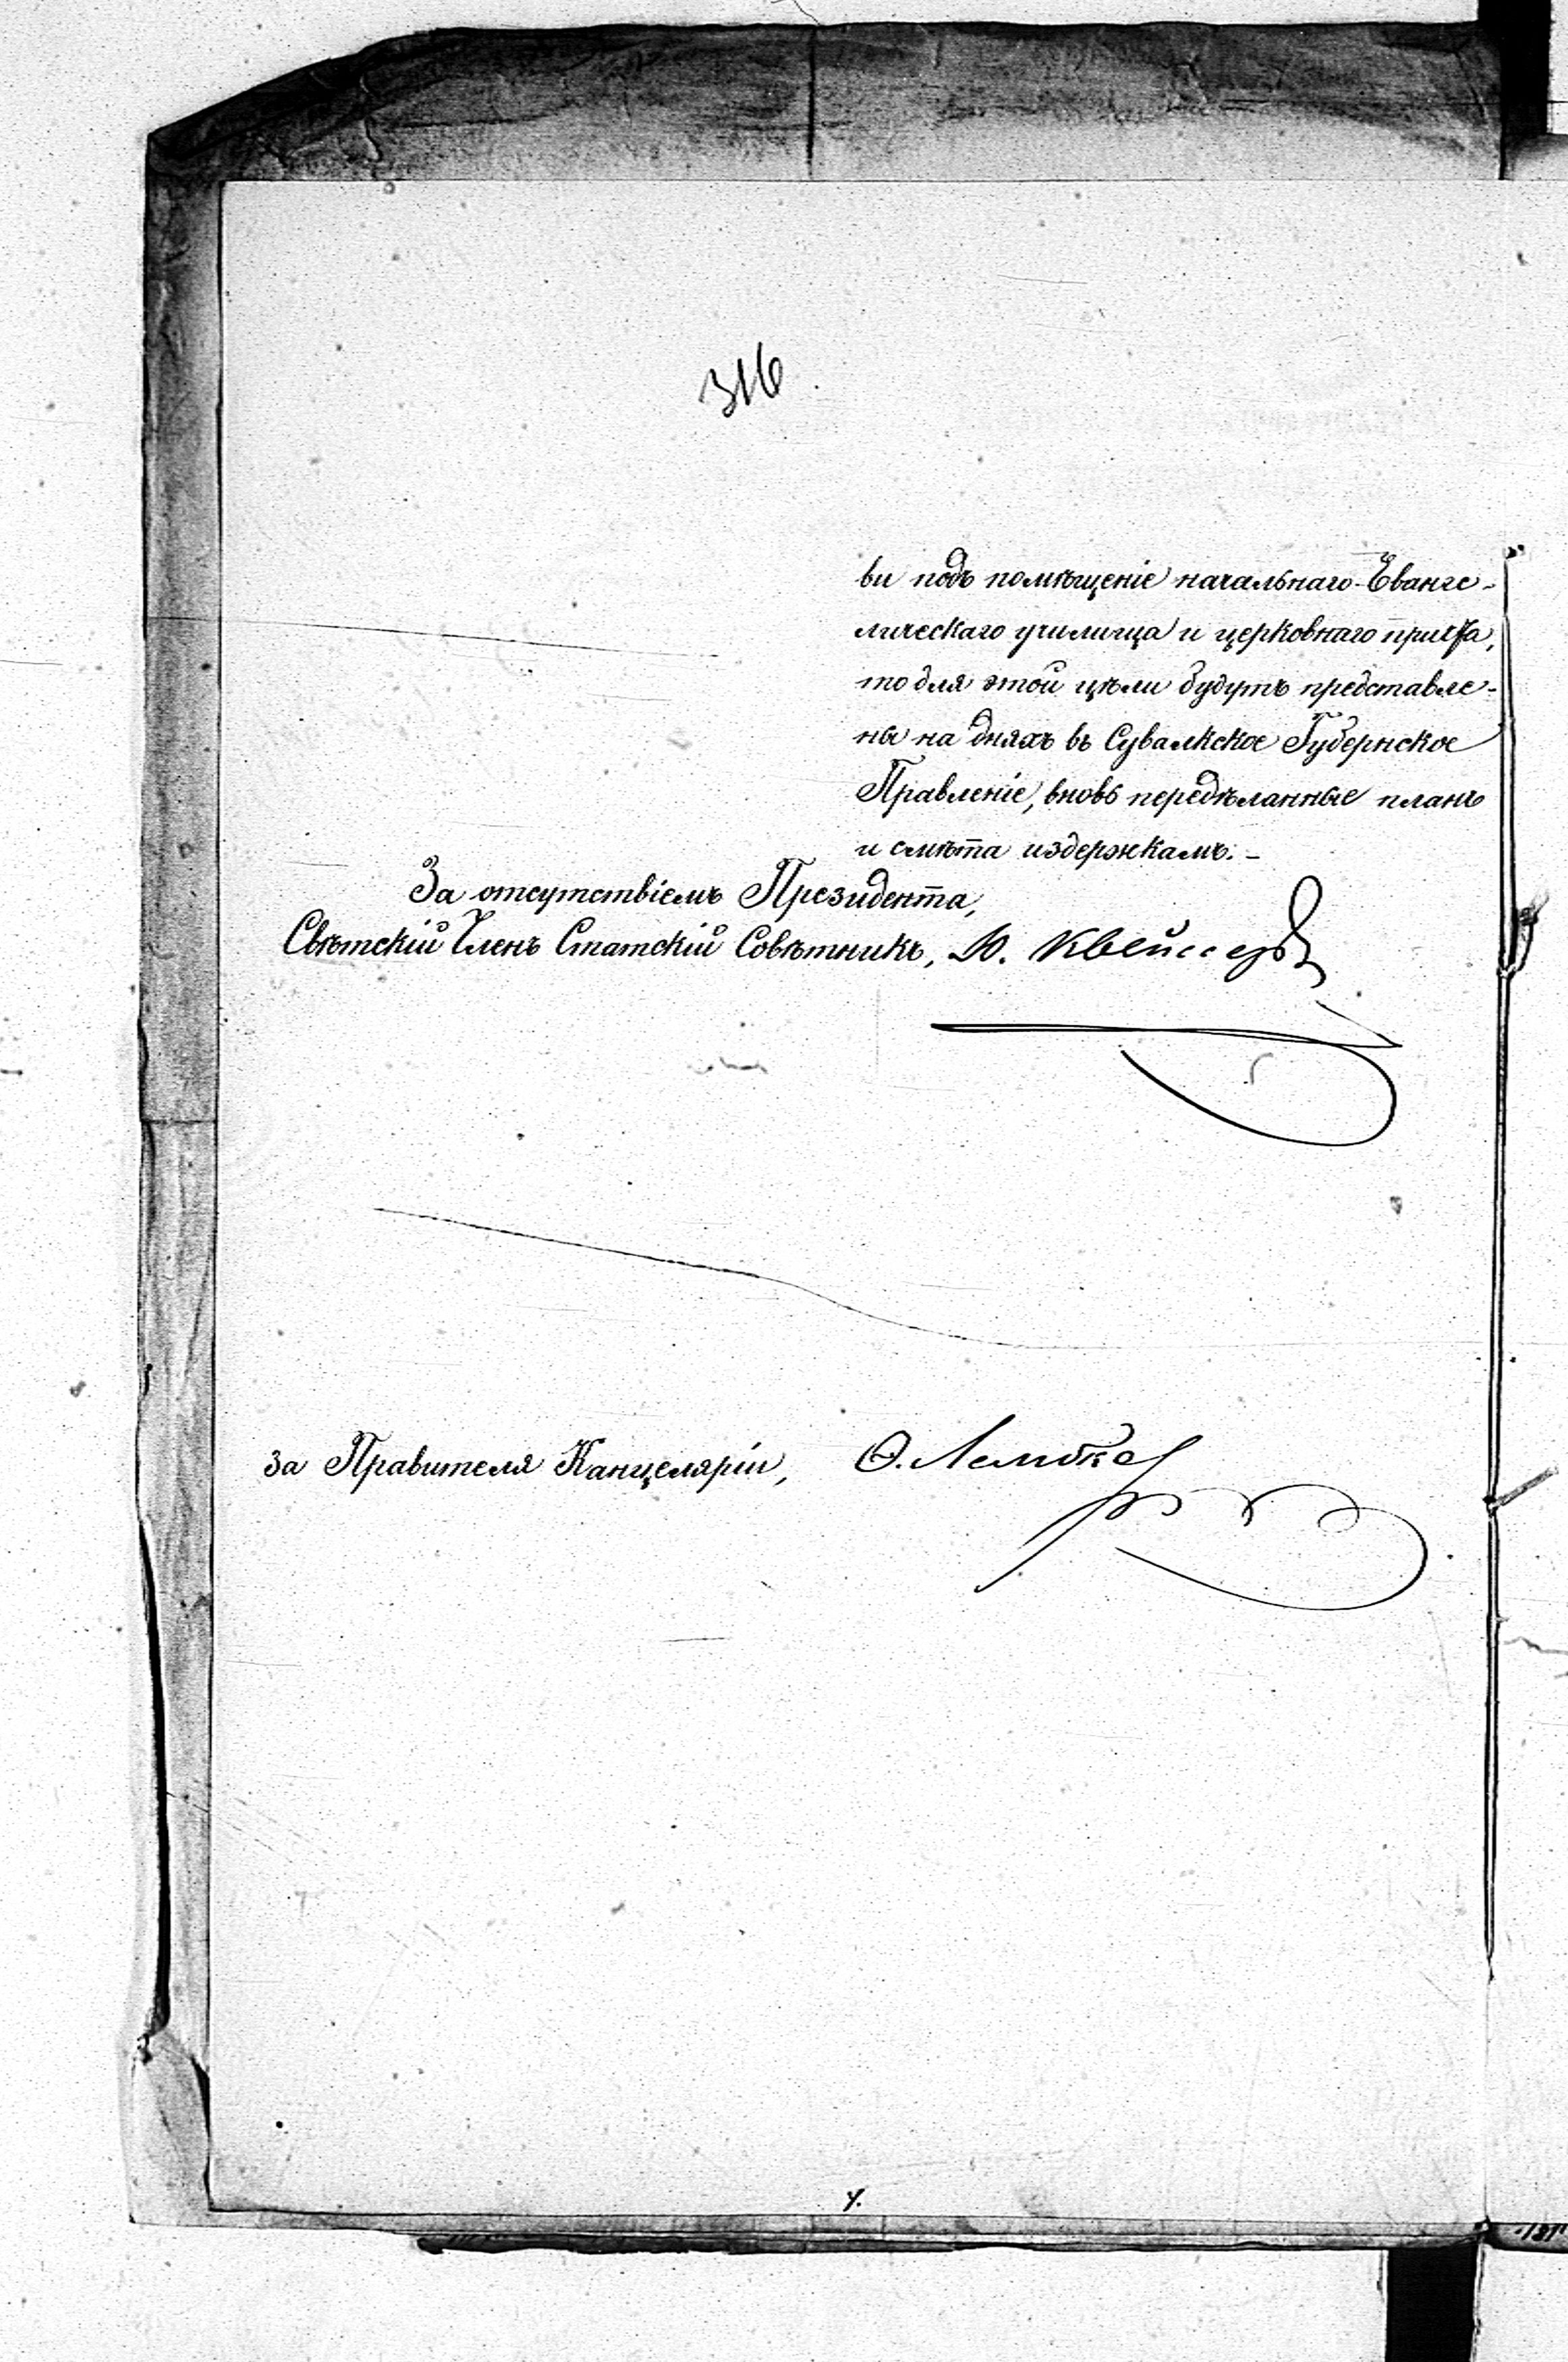 316
ви подъ помѣщеніе начальнаго Еванге-
лическаго училища и церковнаго причта,
то для этой цѣли будутъ представле-
ны на дняхъ въ Сувалкское Губернское
Правленіе, вновь передѣланные планъ
и смѣта издержкамъ. -
За отсутствіемъ Президента,
Свѣтскій Членъ Статскій Совѣтникъ, Ю.
за Правителя Канцеляріи,